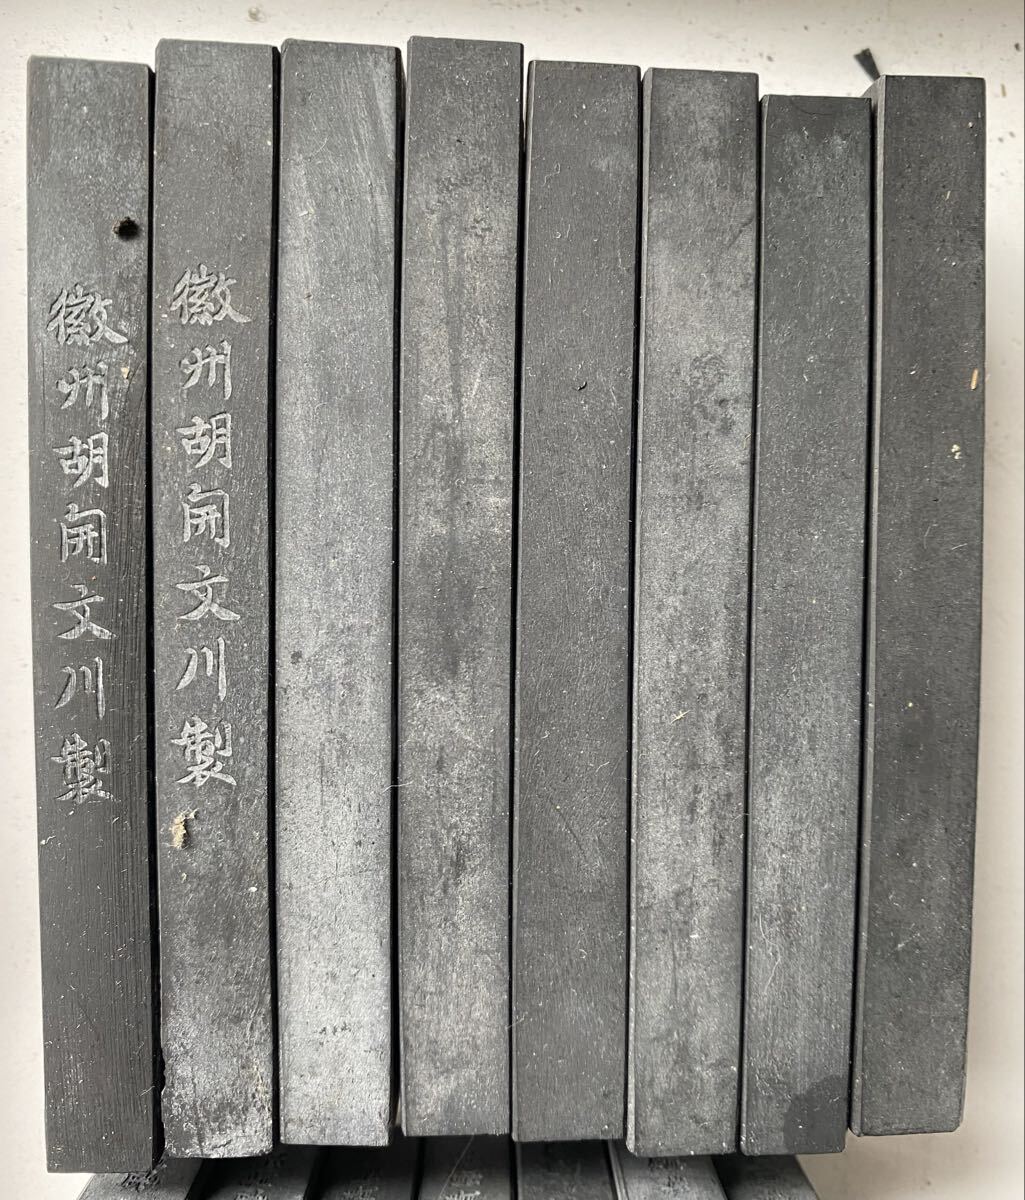 徽州胡開文川製
徽州胡開文川製